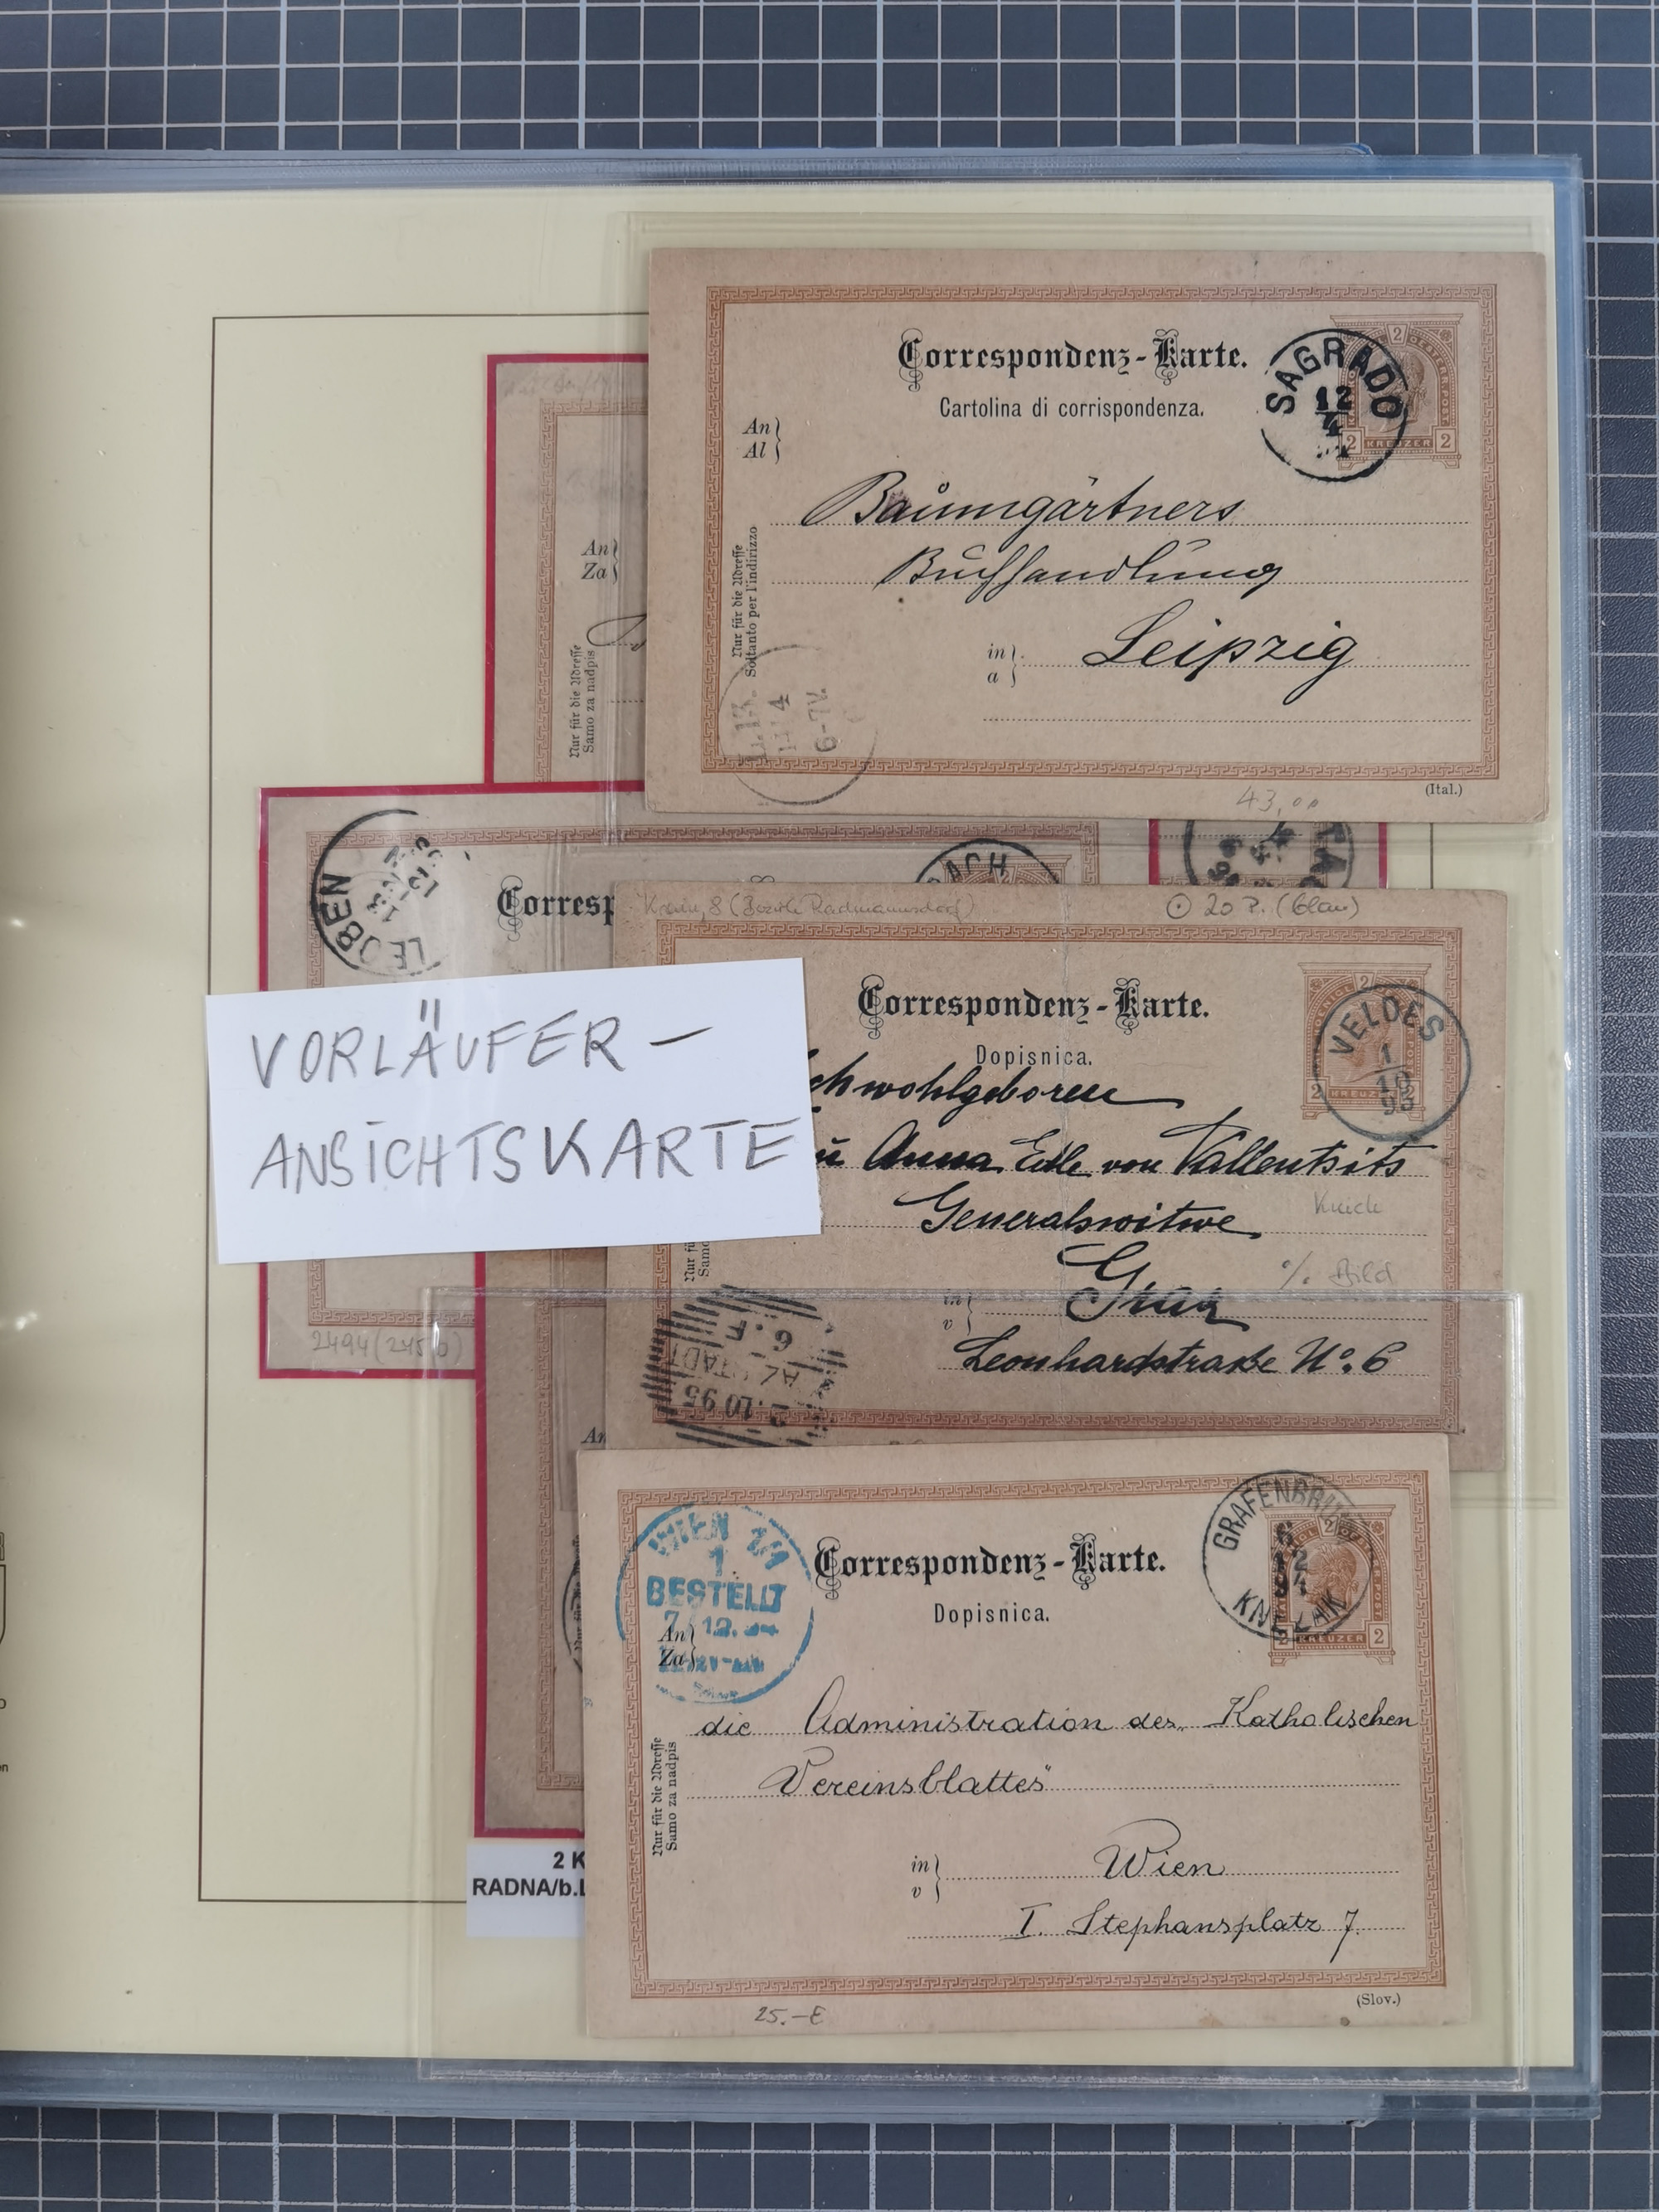 Correspondenz-Karte.
Cartolina di corrispondenza.
An
Al
SAGRADO
12
4
2 KREUZER 2
Baumgärtners
Buchhandlung
in
a
Leipzig
Nur für die Adresse
Soltanto per l'indirizzo
43,00
(Ital.)
An
Za
Nur für die Adresse
Samo za nadpis
LEOBEN
Corresp
2494 (245b)
Krain, 8 (Bezirk Radmannsdorf)
20 P. (blau)
Correspondenz-Karte.
Dopisnica.
VELDES
1
10
95
chwohlgeboren
Anna Edle von Vallentsits
Generalswitwe
Knick
Graz
% Bild
in
v
Leonhardstraße No. 6
2.10.95
6.F
VORLÄUFER-
ANSICHTSKARTE
GRAFENBRUNN
KNEŽAK
6
12
WIEN 1/1
1.
BESTELLT
7 12.
Correspondenz-Karte.
Dopisnica.
An
Za
2 KREUZER 2
die Administration des „Katholischen
Vereinsblattes"
Nur für die Adresse
Samo za nadpis
in
v
Wien
I. Stephansplatz 7.
25.-€
(Slov.)
2 K
RADNA/b.L